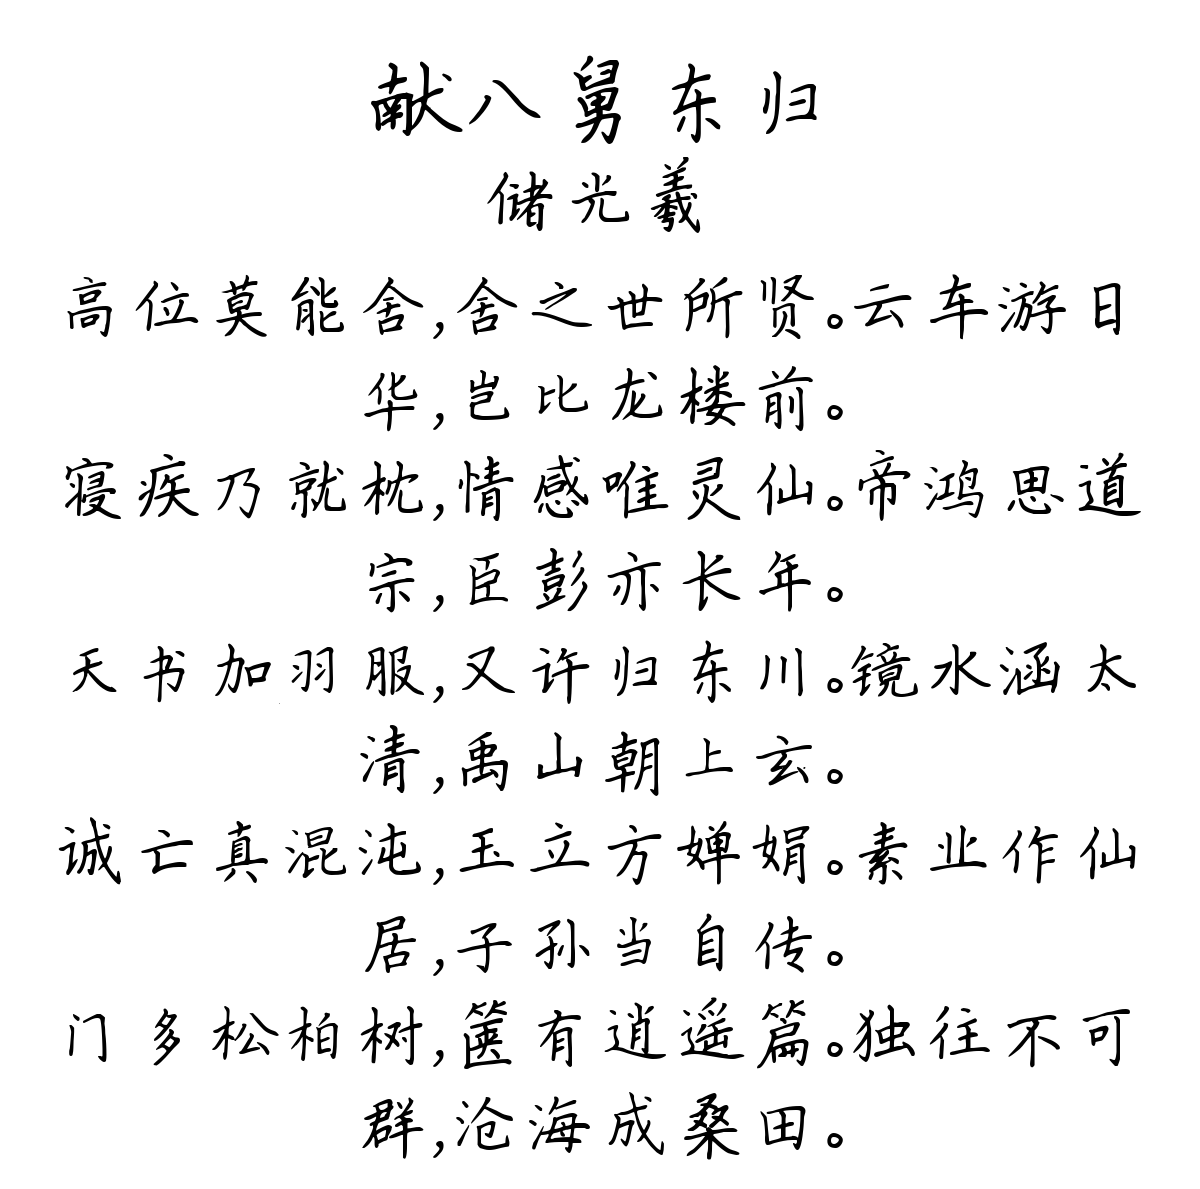 献八舅东归
储光羲
高位莫能舍,舍之世所贤。云车游日
华,岂比龙楼前。
寝疾乃就枕,情感唯灵仙。帝鸿思道
宗,臣彭亦长年。
天书加羽服,又许归东川。镜水涵太
清,禹山朝上玄。
诚亡真混沌,玉立方婵娟。素业作仙
居,子孙当自传。
门多松柏树,箧有逍遥篇。独往不可
群,沧海成桑田。